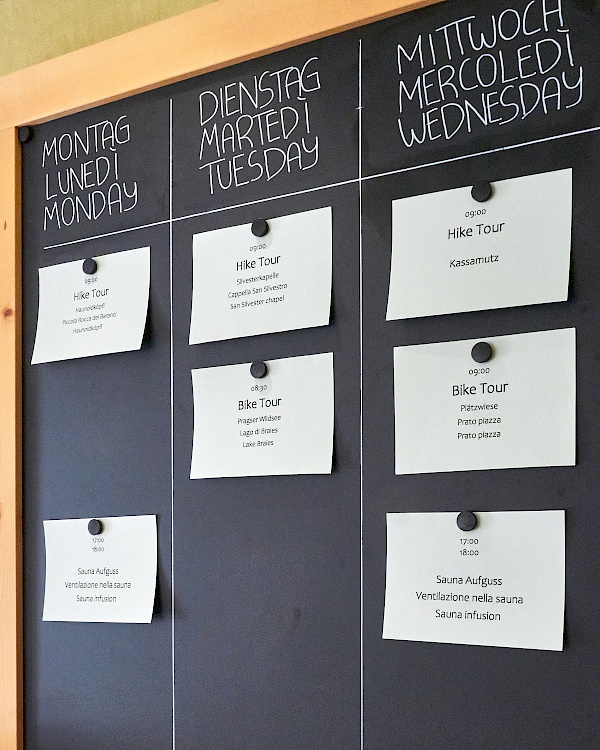 MONTAG
LUNEDÌ
MONDAY
09:00
Hike Tour
Haunoldköpfl
Piccola Rocca dei Baranci
Haunoldköpfl
17:00
18:00
Sauna Aufguss
Ventilazione nella sauna
Sauna infusion
DIENSTAG
MARTEDÌ
TUESDAY
09:00
Hike Tour
Silvesterkapelle
Cappella San Silvestro
San Silvester chapel
08:30
Bike Tour
Pragser Wildsee
Lago di Braies
Lake Braies
MITTWOCH
MERCOLEDÌ
WEDNESDAY
09:00
Hike Tour
Kassamutz
09:00
Bike Tour
Plätzwiese
Prato piazza
Prato piazza
17:00
18:00
Sauna Aufguss
Ventilazione nella sauna
Sauna infusion